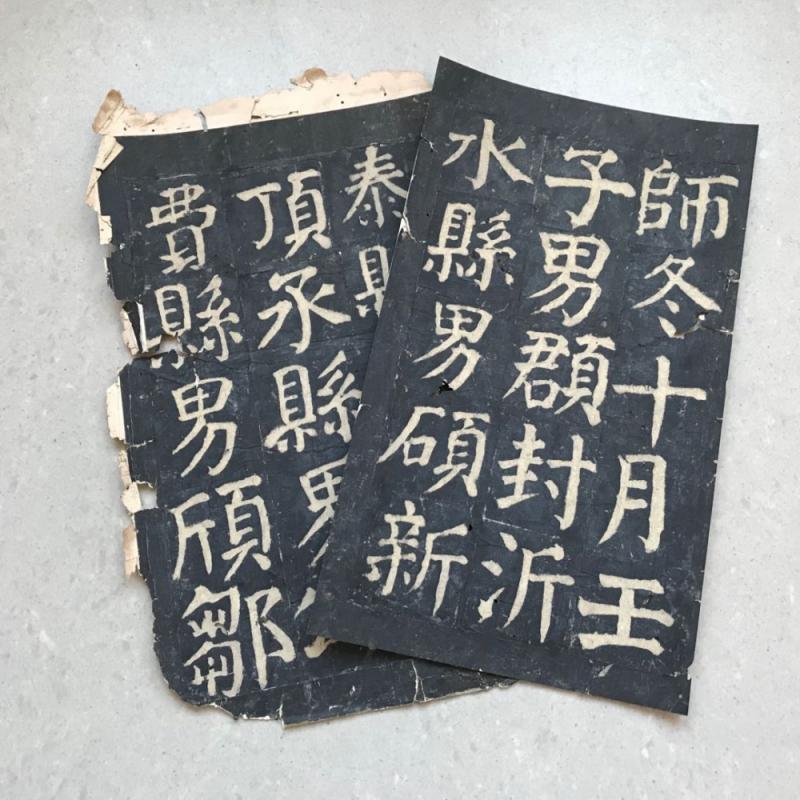 師冬十月壬
子男頵封沂
水縣男碩新
泰縣
頂承縣男
費縣男頎鄒